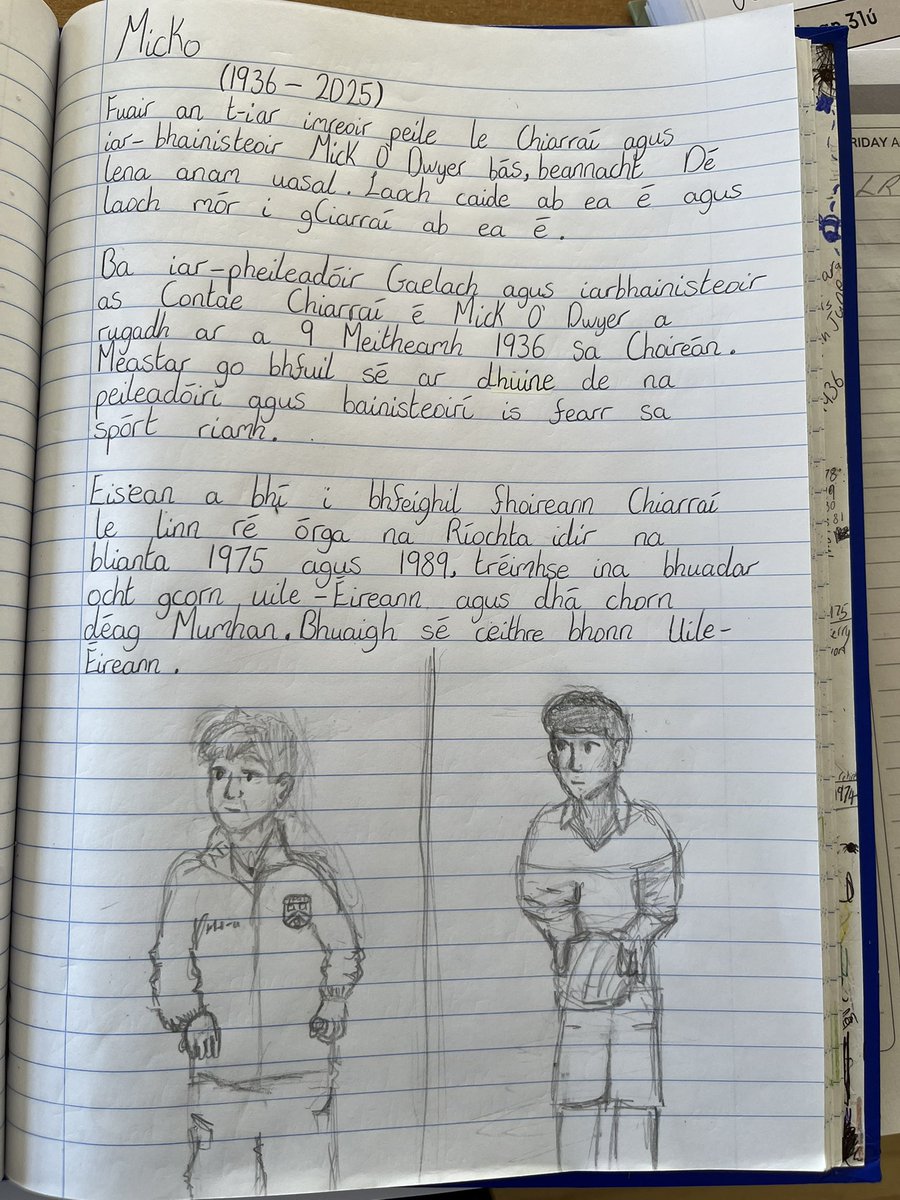 Micko
(1936 - 2025)
Fuair an t-iar imreoir peile le Chiarraí agus
iar-bhainisteoir Mick O' Dwyer bás, beannacht Dé
lena anam uasal. Laoch caide ab ea é agus
laoch mór i gCiarraí ab ea é.
Ba iar-pheileadóir Gaelach agus iarbhainisteoir
as Contae Chiarraí é Mick O' Dwyer a
rugadh ar a 9 Meitheamh 1936 sa Choireán.
Meastar go bhfuil sé ar dhuine de na
peileadóirí agus bainisteoirí is fearr sa
spórt riamh.
Eisean a bhí i bhfeighil fhoireann Chiarraí
le linn ré órga na Ríochta idir na
blianta 1975 agus 1989, tréimhse ina bhuadar
ocht gcorn uile-Éireann agus dhá chorn
déag Mumhan. Bhuaigh sé ceithre bhonn Uile-
Éireann.
31ú
RIDAY A
LR
436
1974